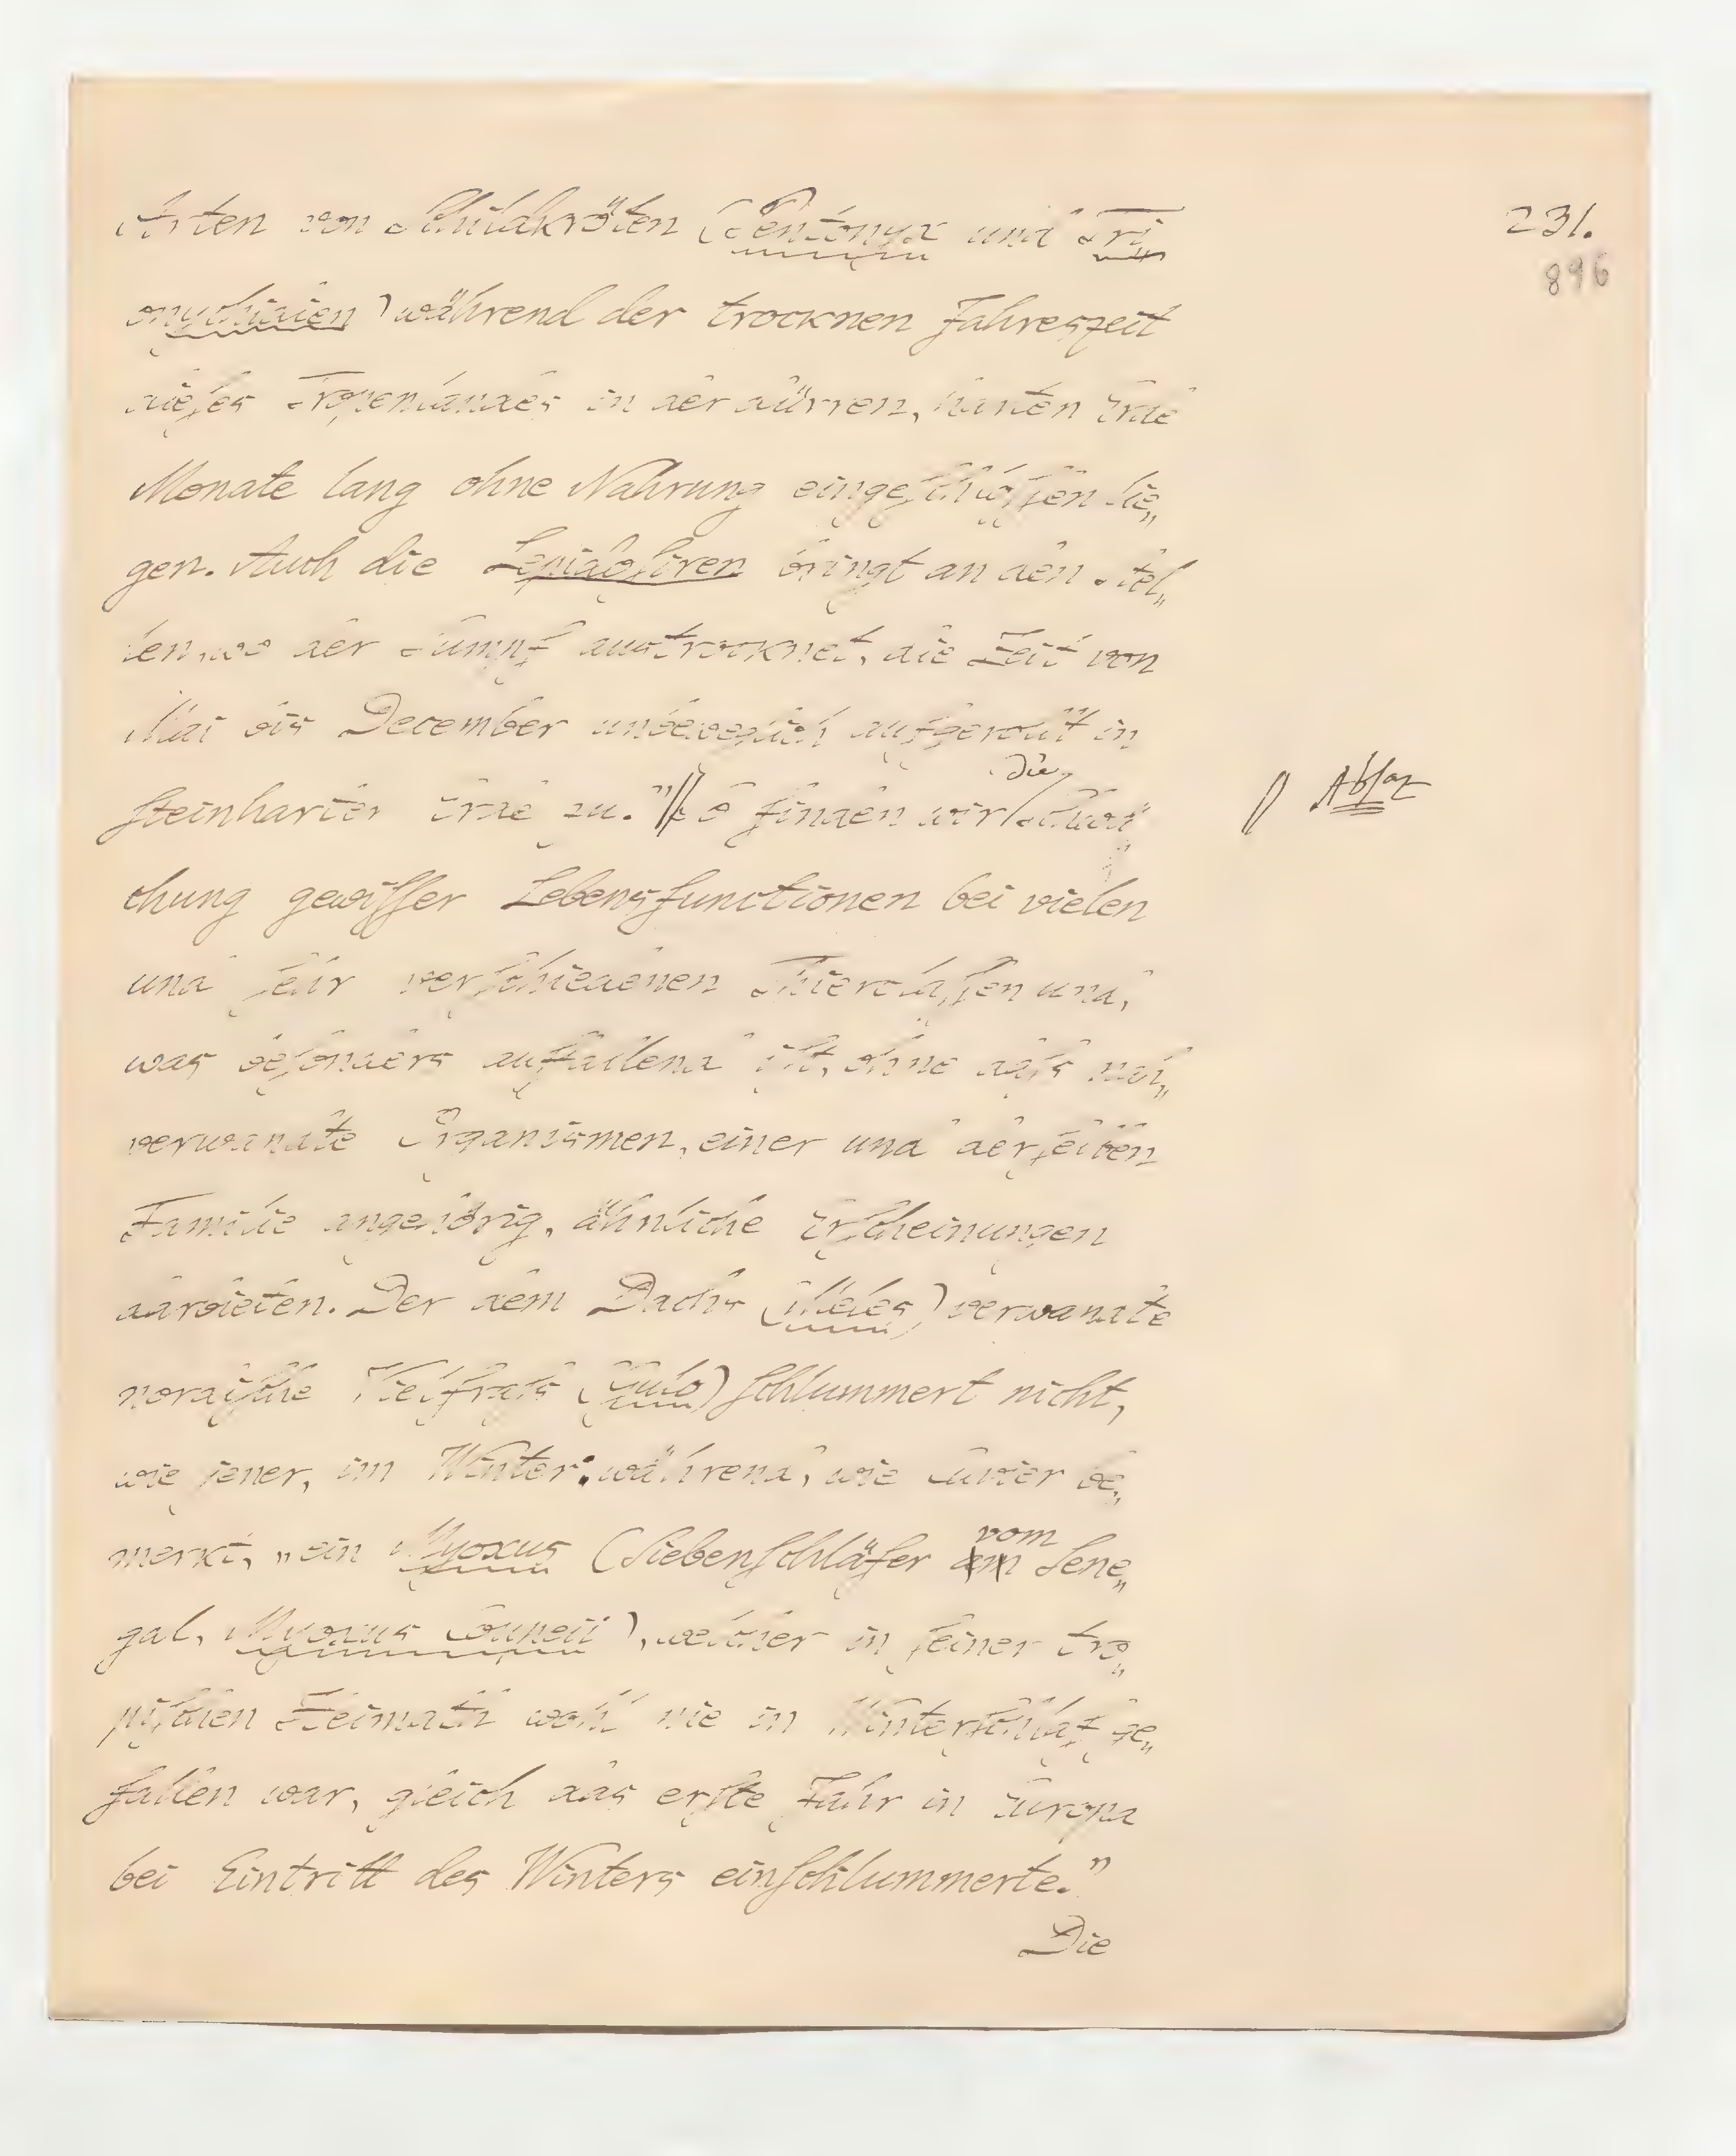 231.
896
Arten von Schildkröten (Pentonyx und Tri
onychiden) während der trocknen Jahreszeit
dieses Tropenlandes in der dürren, harten Erde
Monate lang ohne Nahrung eingeschlossen lie„
gen. Auch die Lepidosiren bringt an den Stel„
len, wo der Sumpf austrocknet, die Zeit von
Mai bis December unbeweglich aufgerollt in
steinharter Erde zu." So finden wir die Schwä„
Absaz
chung gewisser Lebensfunctionen bei vielen
und sehr verschiedenen Thierclassen und,
was besonders auffallend ist, ohne dass nah„
verwandte Organismen, einer und derselben
Familie angehörig, ähnliche Erscheinungen
darbieten. Der dem Dachs (Meles) verwandte
nordische Vielfrass (Gulo) schlummert nicht,
wie jener, im Winter: während, wie Cuvier be„
merkt, „ein Myoxus (Siebenschläfer vom Sene„
gal, Myoxus Coupeii), welcher in seiner tro„
pischen Heimath wohl nie in Winterschlaf ge„
fallen war, gleich das erste Jahr in Europa
bei Eintritt des Winters einschlummerte."
Die